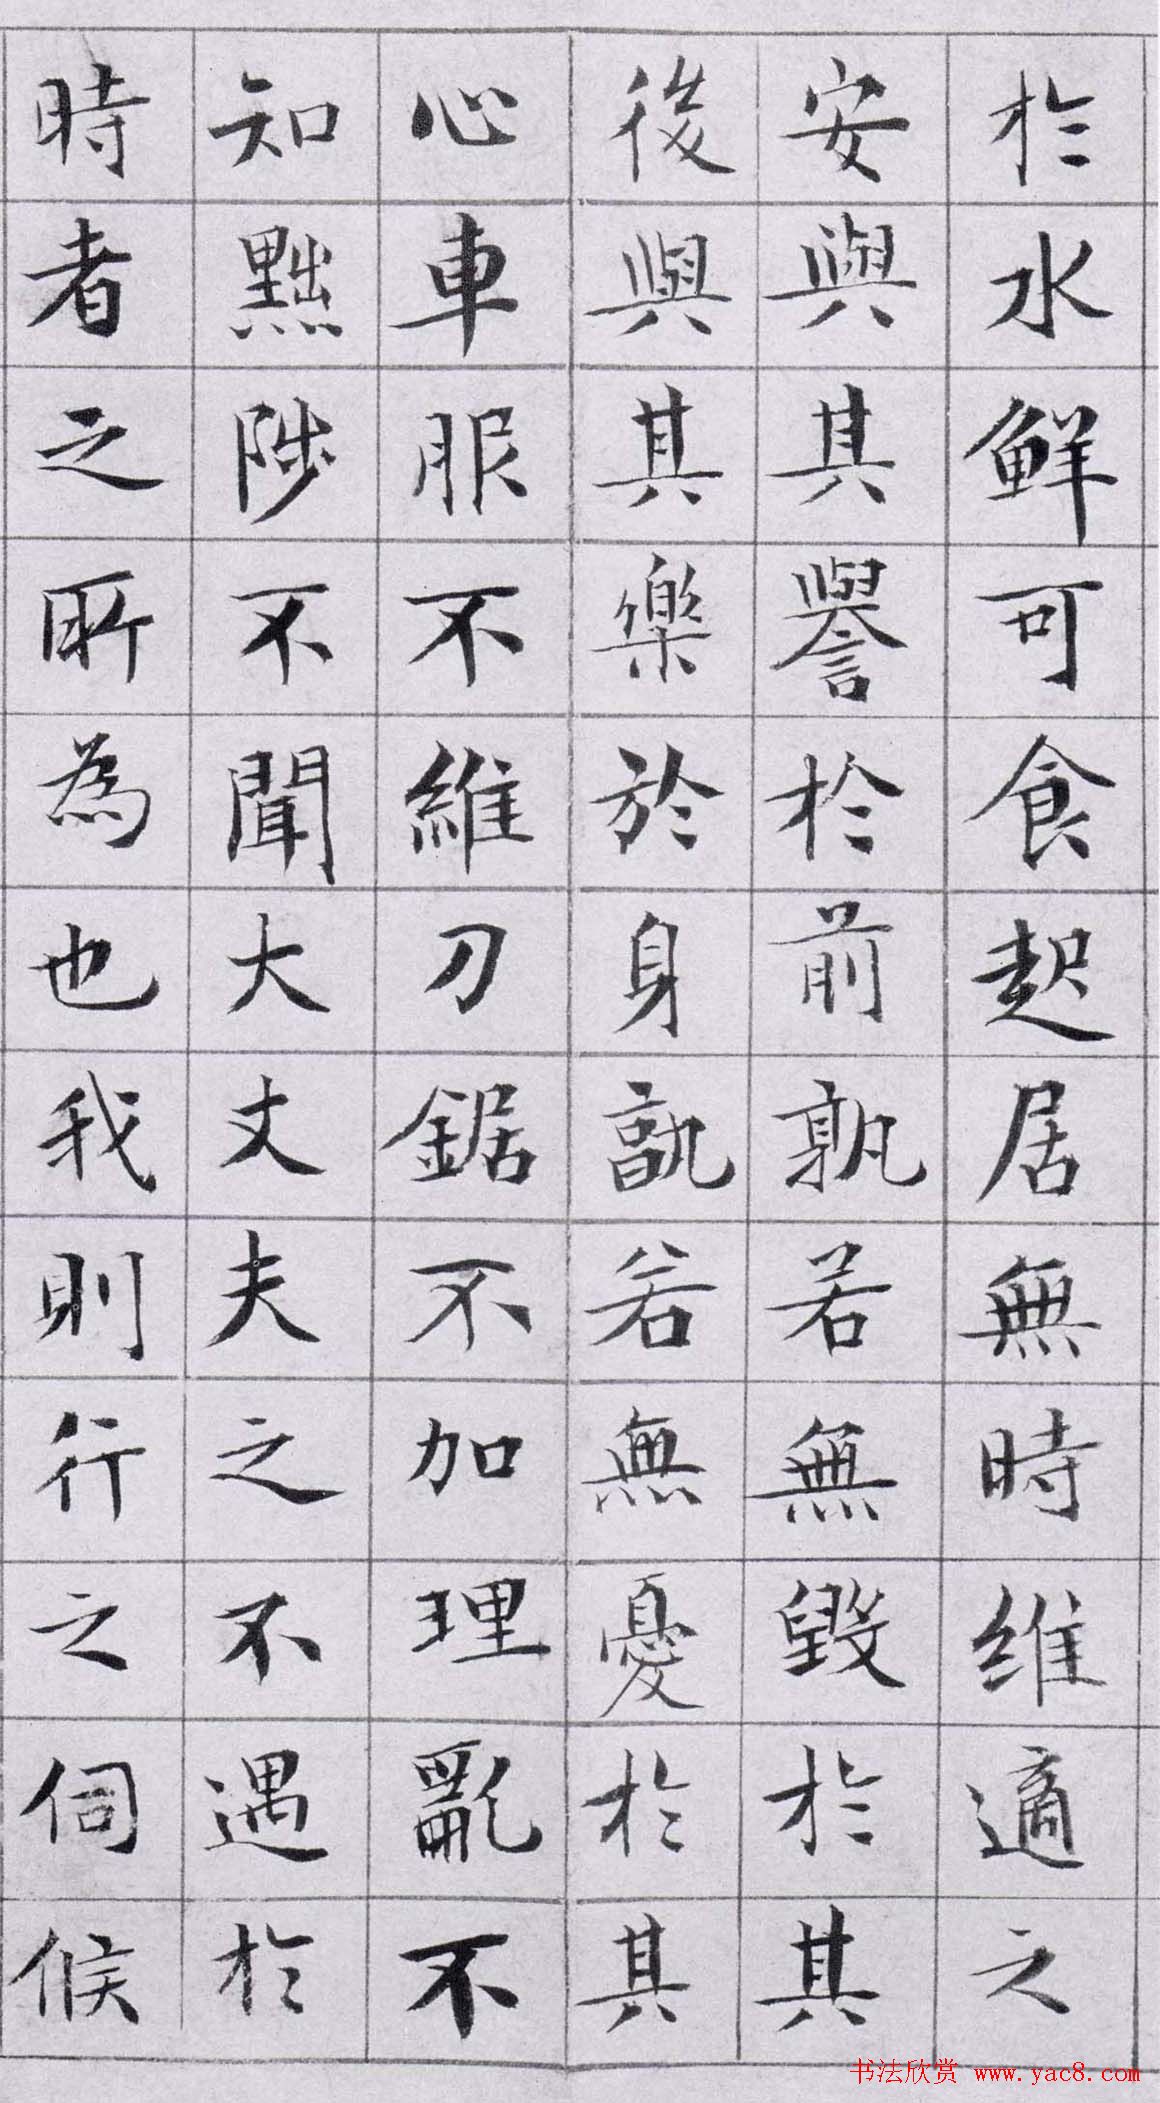 於水鮮可食起居無時維適之
安與其譽於前孰若無毀於其
後與其樂於身孰若無憂於其
心車服不維刀鋸不加理亂不
知黜陟不聞大丈夫之不遇於
時者之所為也我則行之伺候
书法欣赏 www.yac8.com